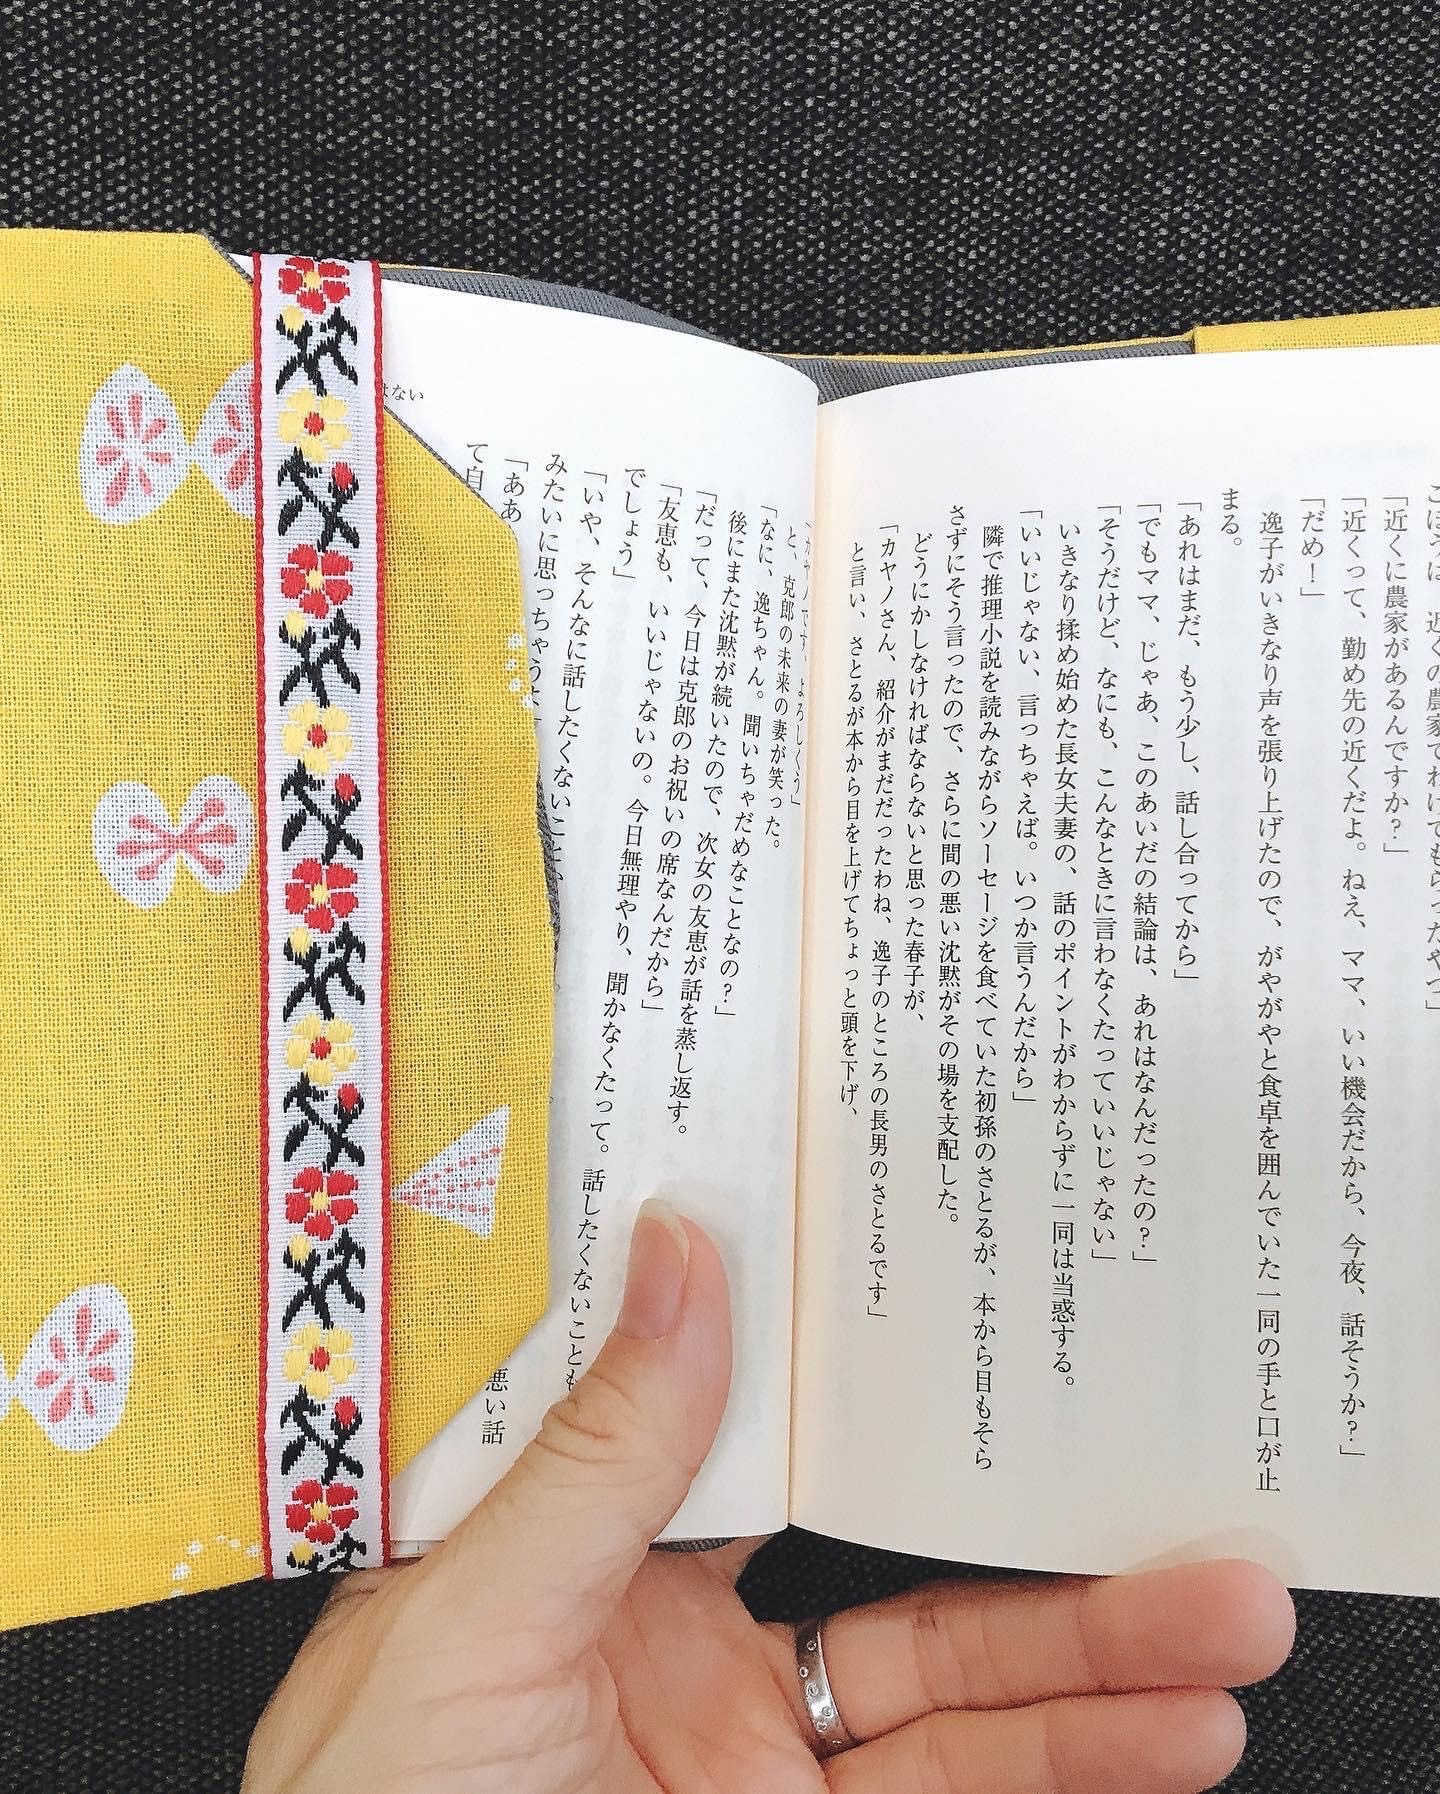 「近くに農家があるんですか？」
「近くって、勤め先の近くだよ。ねえ、ママ、いい機会だから、今夜、話そうか？」
「だめ！」
逸子がいきなり声を張り上げたので、がやがやと食卓を囲んでいた一同の手と口が止
まる。
「あれはまだ、もう少し、話し合ってから」
「でもママ、じゃあ、このあいだの結論は、あれはなんだったの？」
「そうだけど、なにも、こんなときに言わなくたっていいじゃない」
いきなり揉め始めた長女夫妻の、話のポイントがわからずに一同は当惑する。
「いいじゃない、言っちゃえば。いつか言うんだから」
隣で推理小説を読みながらソーセージを食べていた初孫のさとるが、本から目もそら
さずにそう言ったので、さらに間の悪い沈黙がその場を支配した。
どうにかしなければならないと思った春子が、
「カヤノさん、紹介がまだだったわね、逸子のところの長男のさとるです」
と言い、さとるが本から目を上げてちょっと頭を下げ、
はない
「カヤノです、よろしくう」
と、克郎の未来の妻が笑った。
「なに、逸ちゃん。聞いちゃだめなことなの？」
後にまた沈黙が続いたので、次女の友恵が話を蒸し返す。
「だって、今日は克郎のお祝いの席なんだから」
「友恵も、いいじゃないの。今日無理やり、聞かなくたって。話したくないことも
でしょう」
「いや、そんなに話したくないこと
みたいに思っちゃうよ
「ああ
悪い話
て自